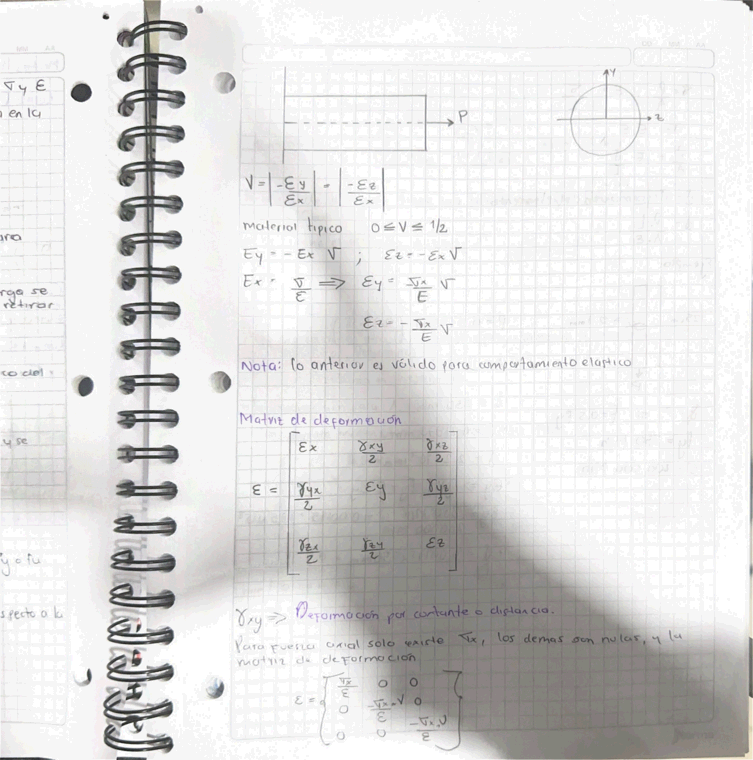 σ y ε
en la
rga se
retirar
y se
specto a la
y
P
z
V = |-εy/εx| = |-εz/εx|
material tipico 0 ≤ V ≤ 1/2
Ey = -Ex √ ; εz = -εx √
Ex = σ/E ⟹ εy = σx/E √
εz = - σx/E √
Nota: lo anterior es válido para comportamiento elastico
Matriz de deformación
εx γxy/2 γxz/2
ε = γyx/2 εy γyz/2
γzx/2 γzy/2 εz
γxy => Deformación por cortante o distancio.
Para fuerza axial solo existe σx, los demas son nulas, y la
matriz de deformación
σx/E 0 0
ε = 0 -σx·V/E 0
0 0 -σx·V/E